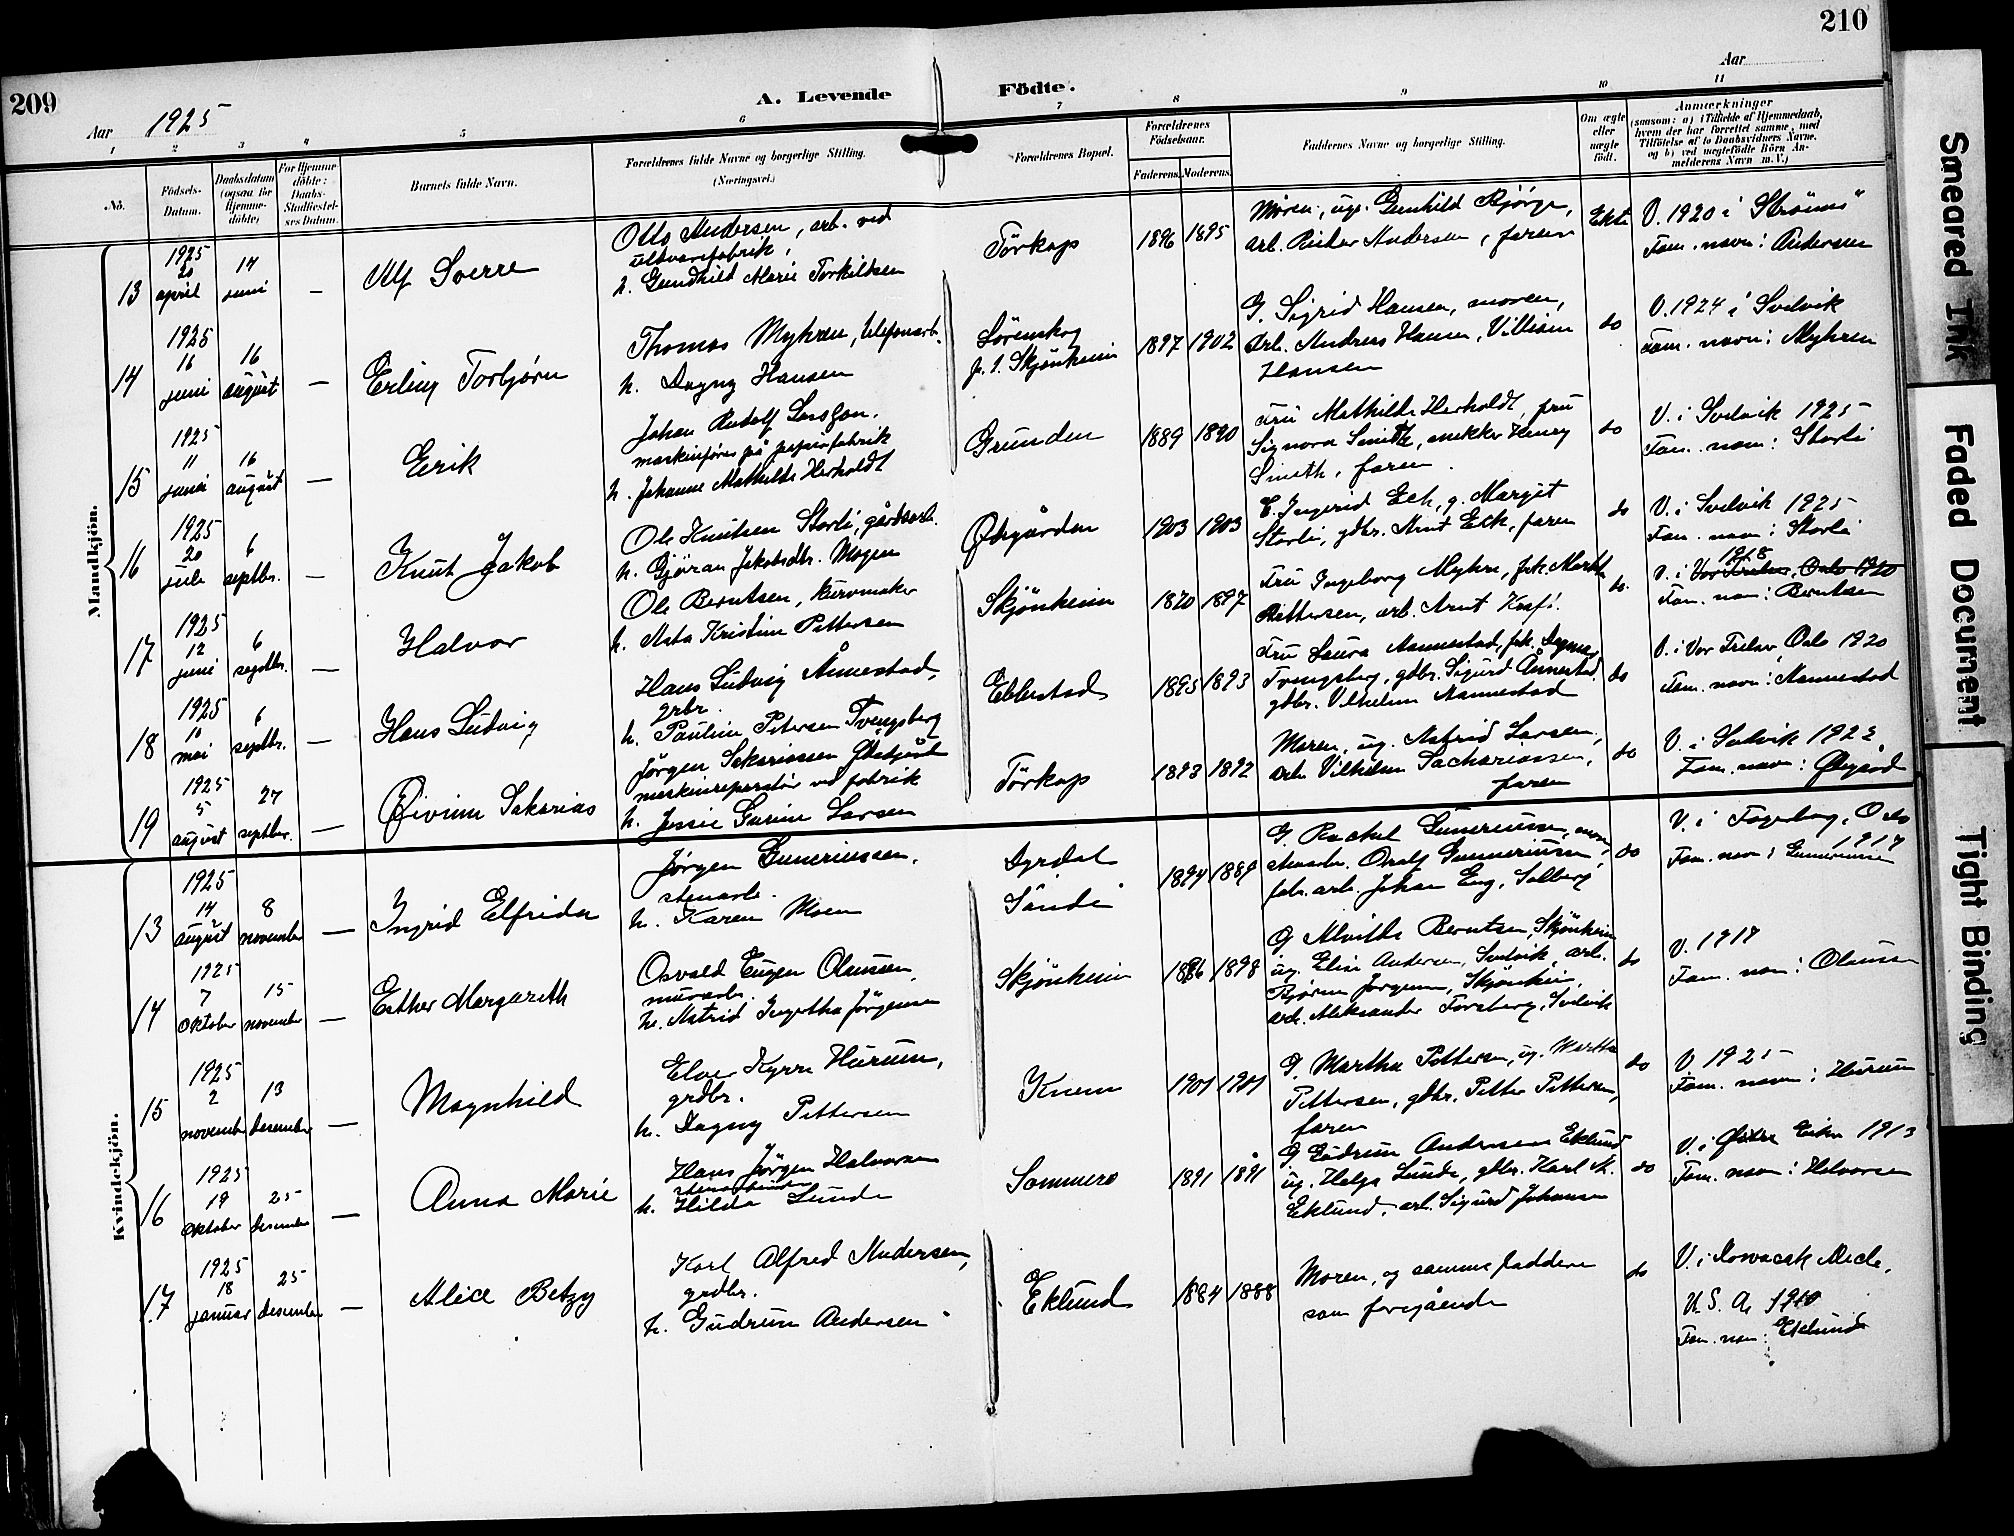 209
210
Aar 1925
A. Levende Födte.
Aar
1 2 3 4 5 6 7 8 9 10 11
No.
Födsels-
Datum.
Daabsdatum
(ogsaa for
Hjemme-
döbte)
For Hjemme-
döbte:
Daabs-
Stadfæstel-
ses Datum.
Barnets fulde Navn.
Forældrenes fulde Navne og borgerlige Stilling.
(Næringsvei.)
Forældrenes Bopæl.
Forældrenes
Födselsaar.
Faderens. Moderens.
Faddernes Navne og borgerlige Stilling.
Om ægte
eller
uægte
födt.
Anmærkninger
(saasom: a) i Tilfælde af Hjemmedaab,
hvem der har forrettet samme, med
Tilföielse af to Daabsvidners Navne,
og b) ved uægtefödte Börn An-
melderens Navn m.V.)
Mandkjön.
13
1925
20
april
14
juni
—
Alf Sverre
Otto Andersen, arb. ved
uldvarefabrik,
h. Gundhild Marie Torkildsen
Törkop
1896 1895
Moren, ug. Gunhild Bjørge,
arb. Andersen, faren
Ekte
V. 1920 i Strömm
Fam. navn: Andersen
14
1925
16
juni
16
august
—
Erling Torbjørn
Thomas Myhren, telefonarb.
h. Dagny Hansen
Sørenskog
p. t. Skjønheim
1897 1902
G. Sigrid Hansen, moren,
Arb. Andreas Hansen, Villiam
Hansen
do
V. 1924 i Svelvik
Fam. navn: Myhren
15
1925
11
juni
16
august
—
Eerik
Johan Rudolf
maskinfører på papirfabrik
h. Johanne Mathilde Herholdt
Grunden
1889 1890
Fru Mathilde Herholdt, fru
Signora Smith, snekker Henry
Smith, faren.
do
V. i Svelvik 1925
Fam. navn: Storli
16
1925
20
juli
6
septbr.
—
Knut Jakob
Ole Knutsen Storli, gårdsarb.
h. Gjøran Jakobsdtr. Mogen
Ødegården
1903 1903
E. Ingerid Eek, g. Margit
Storli, gdbr. Arnt Eek, faren
do
V. i Svelvik 1925
Fam. navn: Storli
17
1925
12
juni
6
septbr.
—
Halvor
Ole Berntsen, kurvmaker
h. Asta Kristine Pettersen
Skjönheim
1870 1897
Fru Ingeborg Myhre, frk. Marth
Pettersen, arb. Arnt
do.
1918
V. i Vor Frelser, Oslo 1920
Fam. navn: Berntsen
18
1925
10
mai
6
septbr.
—
Hans Ludvig
Hans Ludvig Ånnestad,
grbr.
h. Pauline Petersen Tvengsberg
Ebbestad
1895 1893
Fru Laura Aannestad, frk. Dagmar
Tvengsberg, gdbr. Sigurd Ånnestad,
gdbr. Vilhelm Aannestad
do
V. i Vor Frelser, Oslo 1920
Fam. navn: Aannestad
19
1925
5
august
27
septbr.
—
Øivinn Sakarias
Jørgen Sakariassen Ødegård
maskinreparatør ved fabrik
h. Jessie Gurine Larsen
Törkop
1893 1892
Moren, ug. Astrid Larsen,
arb. Vilhelm Sachariassen,
faren
do
V. i Svelvik 1922
Fam. navn: Øegård
Kvindekjön.
13
1925
14
august
8
november
—
Ingrid Elfrida
Jørgen Gunerius­sen,
stenarb.
h. Karen Moen
Dyrdal
Sande
1894 1889
G. Rachel Guneriussen, moren
stenarbr. Oralf Gunneriussen,
fabr. arb. Johan Eng, Solberg
do
V. i Fagerborg, Oslo
1917
Fam. navn: Guneriussen
14
1925
7
oktober
15
november
—
Esther Margareth
Osvald Eugen Olaussen,
murarbr.
h. Astrid Ingertha Jörgensen
Skjönheim
1886 1898
G Alvilde Berntsen, Skjönheim
ug. Elise Andersen, Svelvik, arb.
Bjørn Jørgensen, Skjönheim,
arb. Aleksander Forsberg, Svelvik
do
V. 1917
Fam. navn: Olaussen
15
1925
2
november
13
desember
—
Magnhild
Elver Kyrre Hurum,
grdbr.
h. Dagny Pettersen
Knem
1901 1901
G. Martha Pettersen, ug. Martha
Pettersen, gdbr. Petter Pettersen,
faren
do
V. 1925
Fam. navn: Hurum
16
1925
19
oktober
25
desember
—
Anna Marie
Hans Jörgen Halvorsen
stenarbeider
h. Hilda Lunde
Sommerö
1891 1891
G Gudrun Andersen Eklund
ug. Helga Lunde, gdbr. Karl A.
Eklund, arb. Sigurd Johansen
do
V. i Øvre Eiker 1913
Fam. navn: Halvorsen
17
1925
18
januar
25
desember
—
Alice Betzy
Karl Alfred Andersen,
grdbr.
h. Gudrun Andersen
Eklund
1884 1888
Moren, og samme faddere
som foregående
do
V. i
U. S. A. 1910
Fam. navn: Eklund
Smeared Ink
Faded Document
Tight Binding